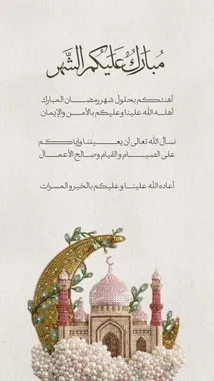 مبارك عليكم الشهر
أهنئكم بحلول شهر رمضان المبارك
أهله الله علينا وعليكم بالأمن والإيمان
نسأل الله تعالى أن يعيننا وإياكم
على الصيام والقيام وصالح الأعمال
أعاده الله علينا وعليكم بالخير والمسرات